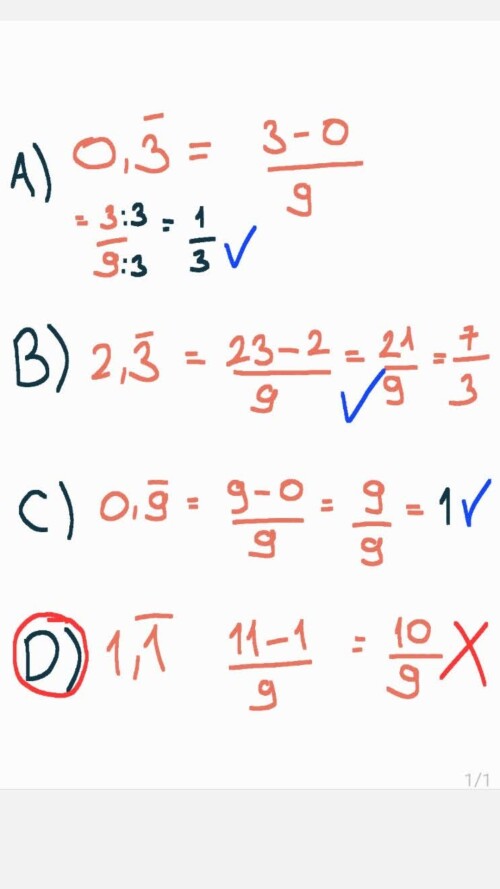 A) 0,3̅ = 3-0/9
= 3:3/9:3 = 1/3 ✓
B) 2,3̅ = 23-2/9 = 21/9 = 7/3 ✓
C) 0,9̅ = 9-0/9 = 9/9 = 1 ✓
D) 1,1̅ 11-1/9 = 10/9 X
1/1